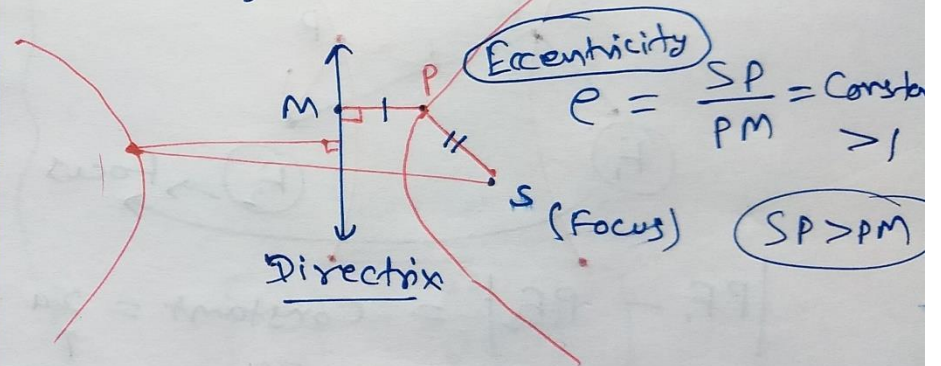 Eccentricity
P
M
e = SP/PM = Consta
>1
S
(Focus)
SP>PM
Directrix